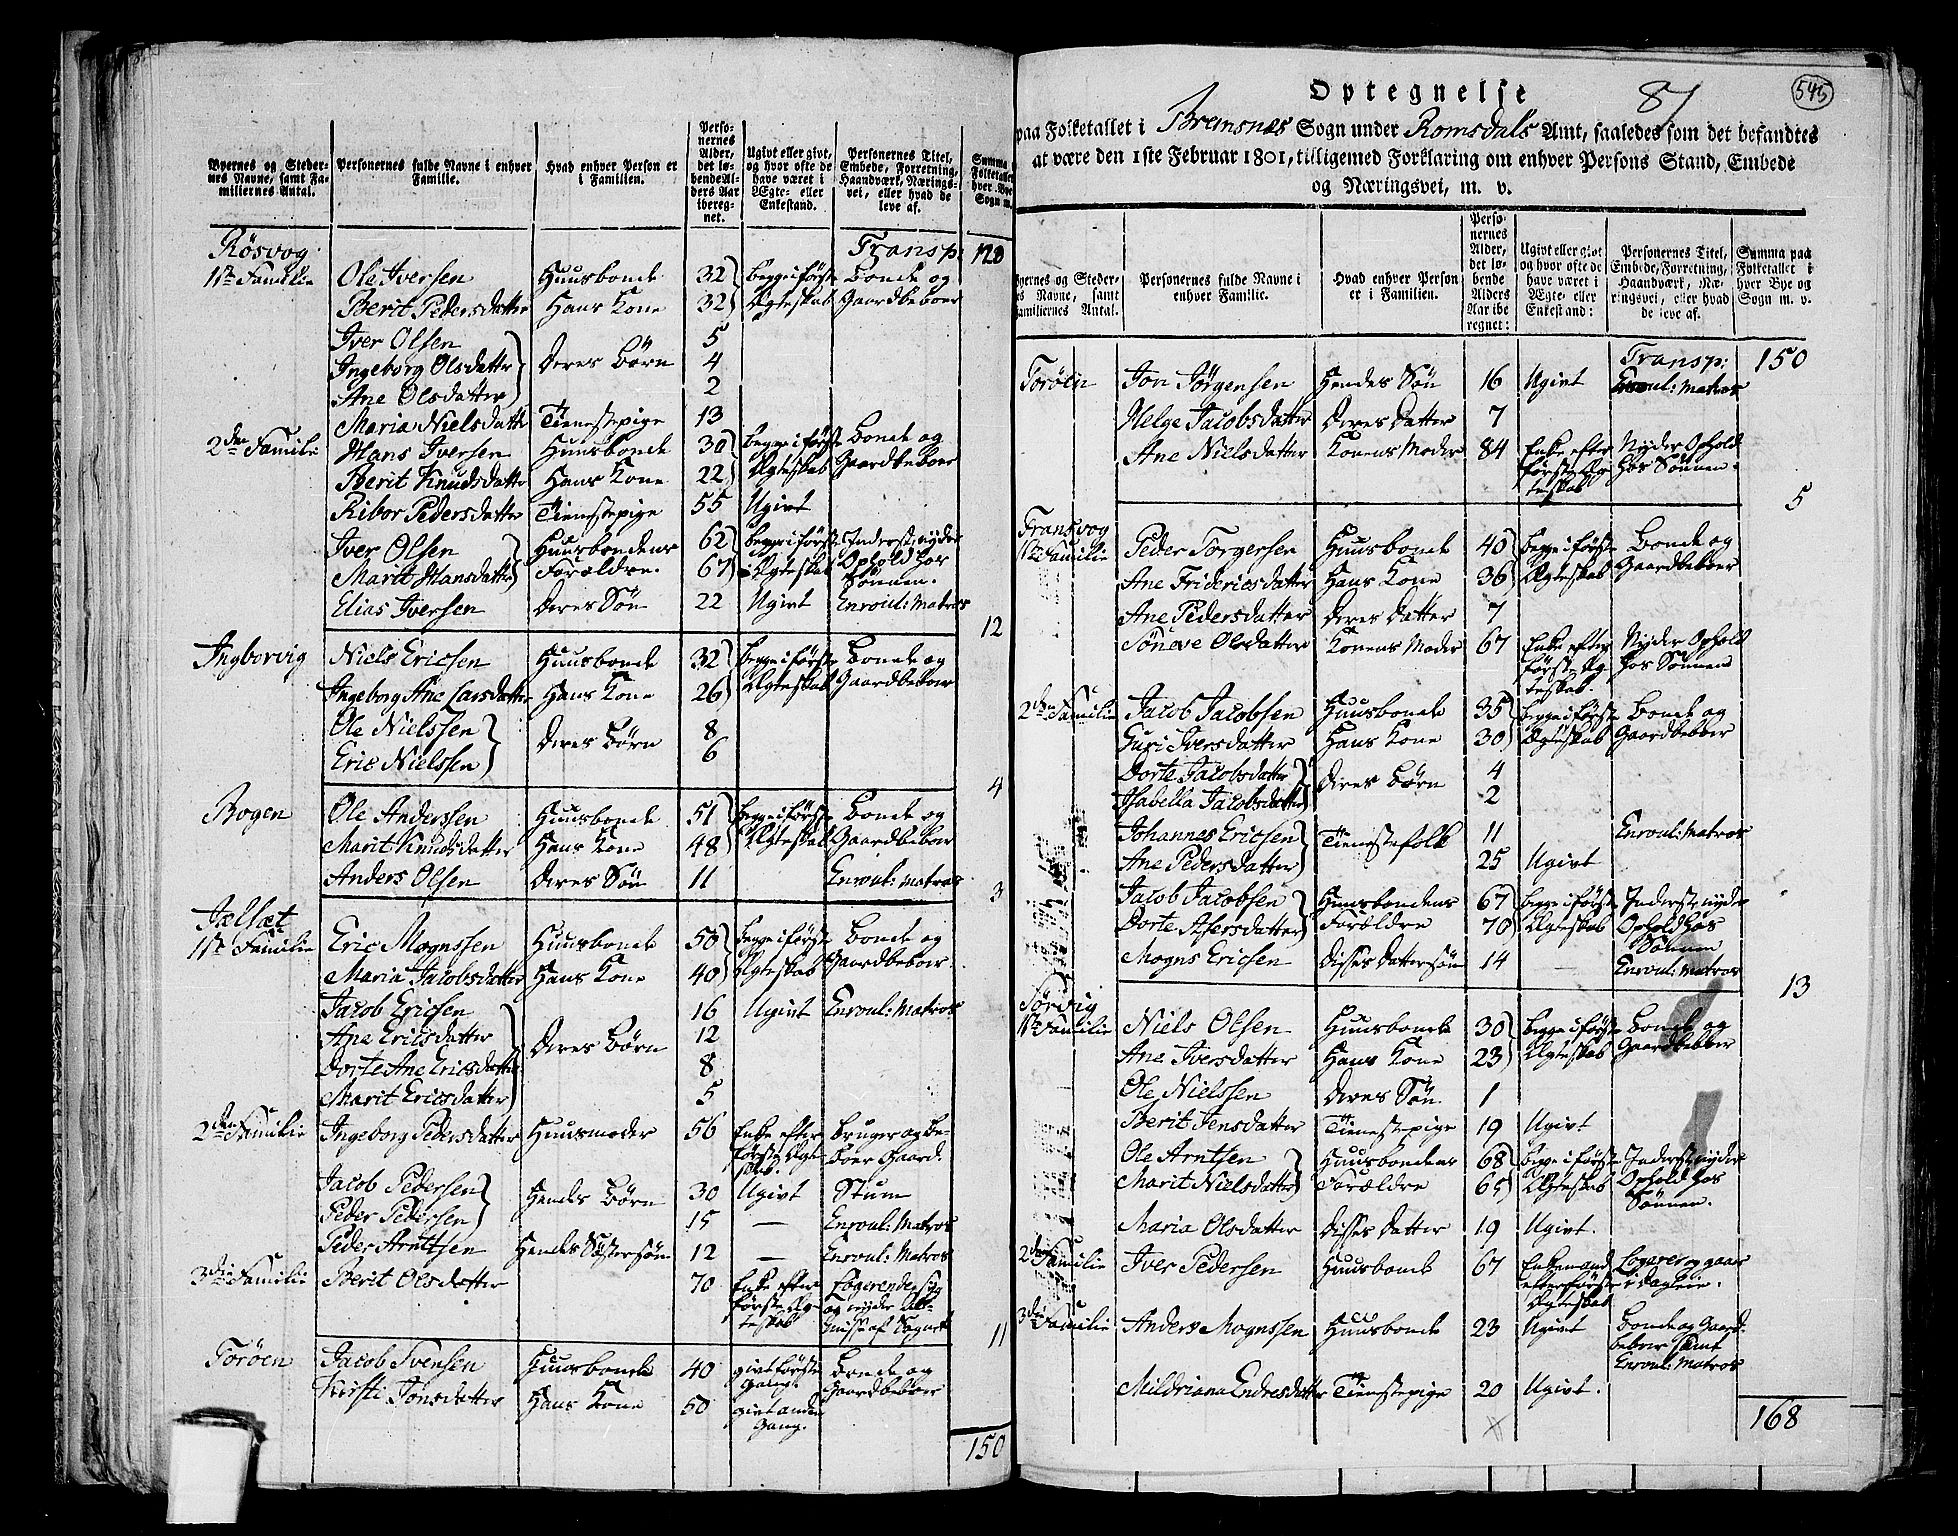 Byernes og Steder-
nes Navne, samt Fa-
miliernes Antal.
Personernes fulde Navne i enhver
Familie.
Hvad enhver Person er
i Familien.
Perso-
nernes
Alder,
det lø-
bende Al-
ders Aar
iberег-
net.
Ugivt eller givt,
og hvor ofte de
have været i
Ægte- eller
Enkestand.
Personernes Titel,
Embede, Forretning,
Haandværk, Nærings-
vei, eller hvad de
leve af.
Summa
Folketallet
hver Bye
Sogn m.
Røsvog Transp: 120
1ste Familie Ole Iversen Huusbonde 32 begge i første Bonde og
Berit Pedersdatter Hans Kone 32 Ægteskab Gaardbeboer
Iver Olsen 5
Ingeborg Olsdatter Deres Børn 4
Ane Olsdatter 2
Maria Nielsdatter Tienestepige 13
2den Familie Hans Iversen Huusbonde 30 begge i første Bonde og
Berit Knudsdatter Hans Kone 22 Ægteskab Gaardbeboer
Ribor Pedersdatter Tienestepige 55 Ugivt
Iver Olsen Huusbondens 62 begge i første Inderst, nyder
Marit Hansdatter Forældre. 67 Ægteskab Ophold hos
Sønnen.
Elias Iversen Deres Søn 22 Ugivt Enroul: Matros
12
Ingborvig Niels Ericsen Huusbonde 32 begge i første Bonde og
Ingeborg Ane Larsdatter Hans Kone 26 Ægteskab Gaardbeboer
Ole Nielssen Deres Børn 8
Eric Nielssen 6
4
Bogen Ole Anderssen Huusbonde 51 begge i første Bonde og
Marit Knudsdatter Hans Kone 48 Ægteskab Gaardbeboer
Anders Olsen Deres Søn 11 Enroul: Matros
3
Jælsæt
1ste Familie Eric Mognssen Huusbonde 50 begge i første Bonde og
Maria Jacobsdatter Hans Kone 40 Ægteskab Gaardbeboer.
Jacob Ericsen 16 Ugivt Enroul: Matros
Ane Ericsdatter Deres Børn 12
Dorte Ane Ericsdatter 8
Marit Ericsdatter 5
2den Familie Ingeborg Pedersdatter Huusmoder 56 Enke efter Bruger og be-
første Ægte- boer Gaard.
skab.
Jacob Pedersen Hendes Børn 30 Ugivt Stum
Peder Pedersen 15 — Enroul: Matros
Peder Arntsen Hendes Søstersøn 12 — Enroul: Matros
3die Familie Berit Olsdatter 70 Enke efter Logerende sig
første Æg- og nyder Al-
teskab misse af Sognet
11
Torøen Jacob Svensen Huusbonde 40 givt første Bonde og
Gang Gaardbeboer
Kirsti Jonsdatter Hans Kone 50 givt anden
Gang.
150
545
87
Optegnelse
paa Folketallet i Bremsnæs Sogn under Romsdals Amt, saaledes som det befandtes
at være den 1ste Februar 1801, tilligemed Forklaring om enhver Persons Stand, Embede
og Næringsvei, m. v.
Byernes og Steder-
nes Navne, samt
Familiernes Antal.
Personernes fulde Navne i
enhver Familie.
Hvad enhver Person
er i Familien.
Perso-
nernes
Alder,
det lø-
bende
Alders
Aar ibe
regnet:
Ugivt eller givt
og hvor ofte de
have været i
Ægte- eller
Enkestand:
Personernes Titel,
Embede, Forretning,
Haandværk, Næ-
ringsvei, eller hvad
de leve af.
Summa paa
Folketallet i
hver Bye og
Sogn m. v.
Transp: 150
Torøen Jon Jørgensen Hendes Søn 16 Ugivt Enroul: Matros
Helge Jacobsdatter Deres Datter 7
Ane Nielsdatter Konens Moder 84 Enke efter Nyder Ophold
første Æg- hos Sønnen.
teskab
5
Transvog
1ste Familie Peder Torgersen Huusbonde 40 begge i første Bonde og
Ane Fridericsdatter Hans Kone 36 Ægteskab Gaardbeboer
Ane Pedersdatter Deres Datter 7
Søneve Olsdatter Konens Moder 67 Enke efter Nyder Ophold
første Æg- hos Sønnen
teskab.
2den Familie Jacob Jacobsen Huusbonde 35 begge i første Bonde og
Guri Iversdatter Hans Kone 30 Ægteskab Gaardbeboer
Dorte Jacobsdatter Deres Børn 4
Isabella Jacobsdatter 2
Johannes Ericsen Tienestefolk 11 Enroul: Matros
Ane Pedersdatter 25 Ugivt
Jacob Jacobsen Huusbondens 67 begge i første Inderst, nyder
Dorte Asersdatter Forældre 70 Ægteskab Ophold hos
Sønnen
Mogns Ericsen Disses Dattersøn 14 — Enroul: Matros
13
Sørvig
1ste Familie Niels Olsen Huusbonde 30 begge i første Bonde og
Ane Iversdatter Hans Kone 23 Ægteskab Gaardbeboer
Ole Nielssen Deres Søn 1
Berit Jensdatter Tienestepige 19 Ugivt
Ole Arntsen Huusbondens 68 begge i første Inderst, nyder
Marit Nielsdatter Forældre 65 Ægteskab Ophold hos
Sønnen.
Maria Olsdatter Disses Datter 19 Ugivt.
2den Familie Iver Pedersen Huusbonde 67 Enkemand Logerer og gaar
efter første i Dagleie.
Ægteskab
3die Familie Anders Mognssen Huusbonde 23 Ugivt Bonde og Gaard-
beboer samt
Enroul: Matros
Mildriana Endresdatter Tienestepige 20 Ugivt.
168